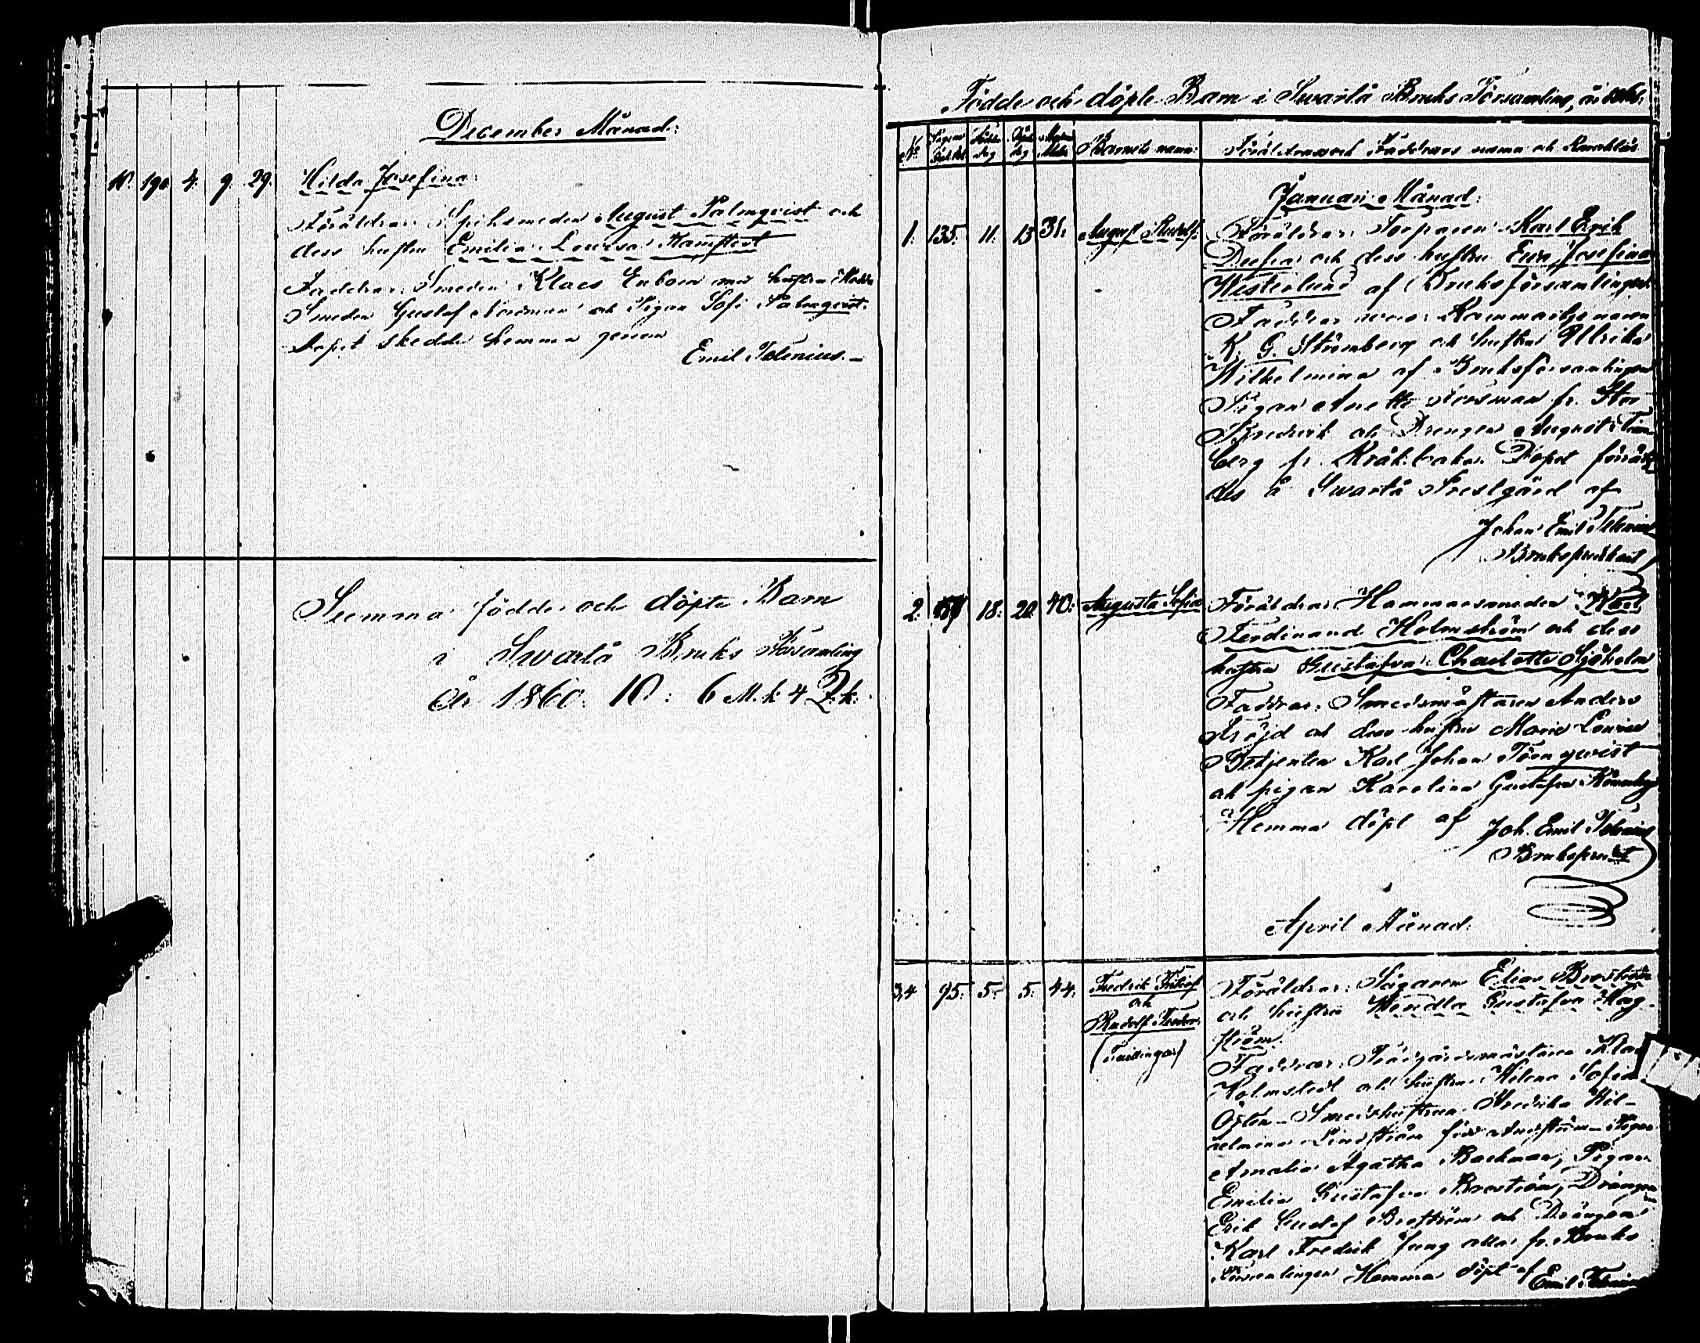 December Månad:
10. 190 4. 9. 29. Hilda Josefina
Föräldrar: Spiksmeden August Palmqvist och
dess hustru Emilia Lovisa
Faddrar: Smeden Klaes Enbom med hustru Hedda
Smeden Gustaf Nordman och Pigan Sofi Palmqvist.
Dopet skedde hemma genom
Emil Telenius.
Summa födde och döpte Barn
i Swartå Bruks Församling
År 1860. 10: 6 M.k. 4 Q.k.
Födde och döpte Barn i Swartå Bruks Församling, år
No Barnets namn: Föräldrars och Faddrars namn och
Januari Månad:
1. 135. 11. 13 31. August Rudolf. Föräldrar: Karl Erik
och dess hustru Eva Josefina
Westerlund af Bruksförsamlingen
Faddrar woro:
K. G. Strömberg och hustru Ulrika
Wilhelmina af Bruksförsamlingen
Pigan Anette Forsman fr. Stor
och Drengen August
berg fr. Dopet förrätta
des å Swartå Prestgård af
Johan Emil Telenius
Brukspredikant
2. 18. 20. 40. Augusta Sofia Föräldrar: Hammarsmeden Karl
Ferdinand Holmström och dess
hustru Gustafva Charlotta Sjöholm
Faddrar: Smedsmästaren Anders
Fröjd och dess hustru Maria Lovisa
Betjenten Karl Johan Törnqwist
och pigan Karolina Gustafva
Hemma döpt af Joh. Emil Telenius
Brukspred
April Månad:
3.4 95. 5. 5. 44. Fredrik Fritiof Föräldrar: Sågaren Elias Broström
och och hustru Wendla Gustafva Hag-
Rudolf Teodor. ström.
(Tvillingar) Faddrar: Trädgårdsmästare Klas
Holmstedt och hustru Helena Sofia
Östen - Smedshustrun Fredrika Wil-
helmina Lindström född Andström - Pigan
Amalia Agatha Backman, Pigan
Emilia Gustafva Broström, Drängen
Erik Gustaf Broström och Drängen
Karl Fredrik Jung alla fr. Bruks
Församlingen Hemma döpt af Emil Telenius